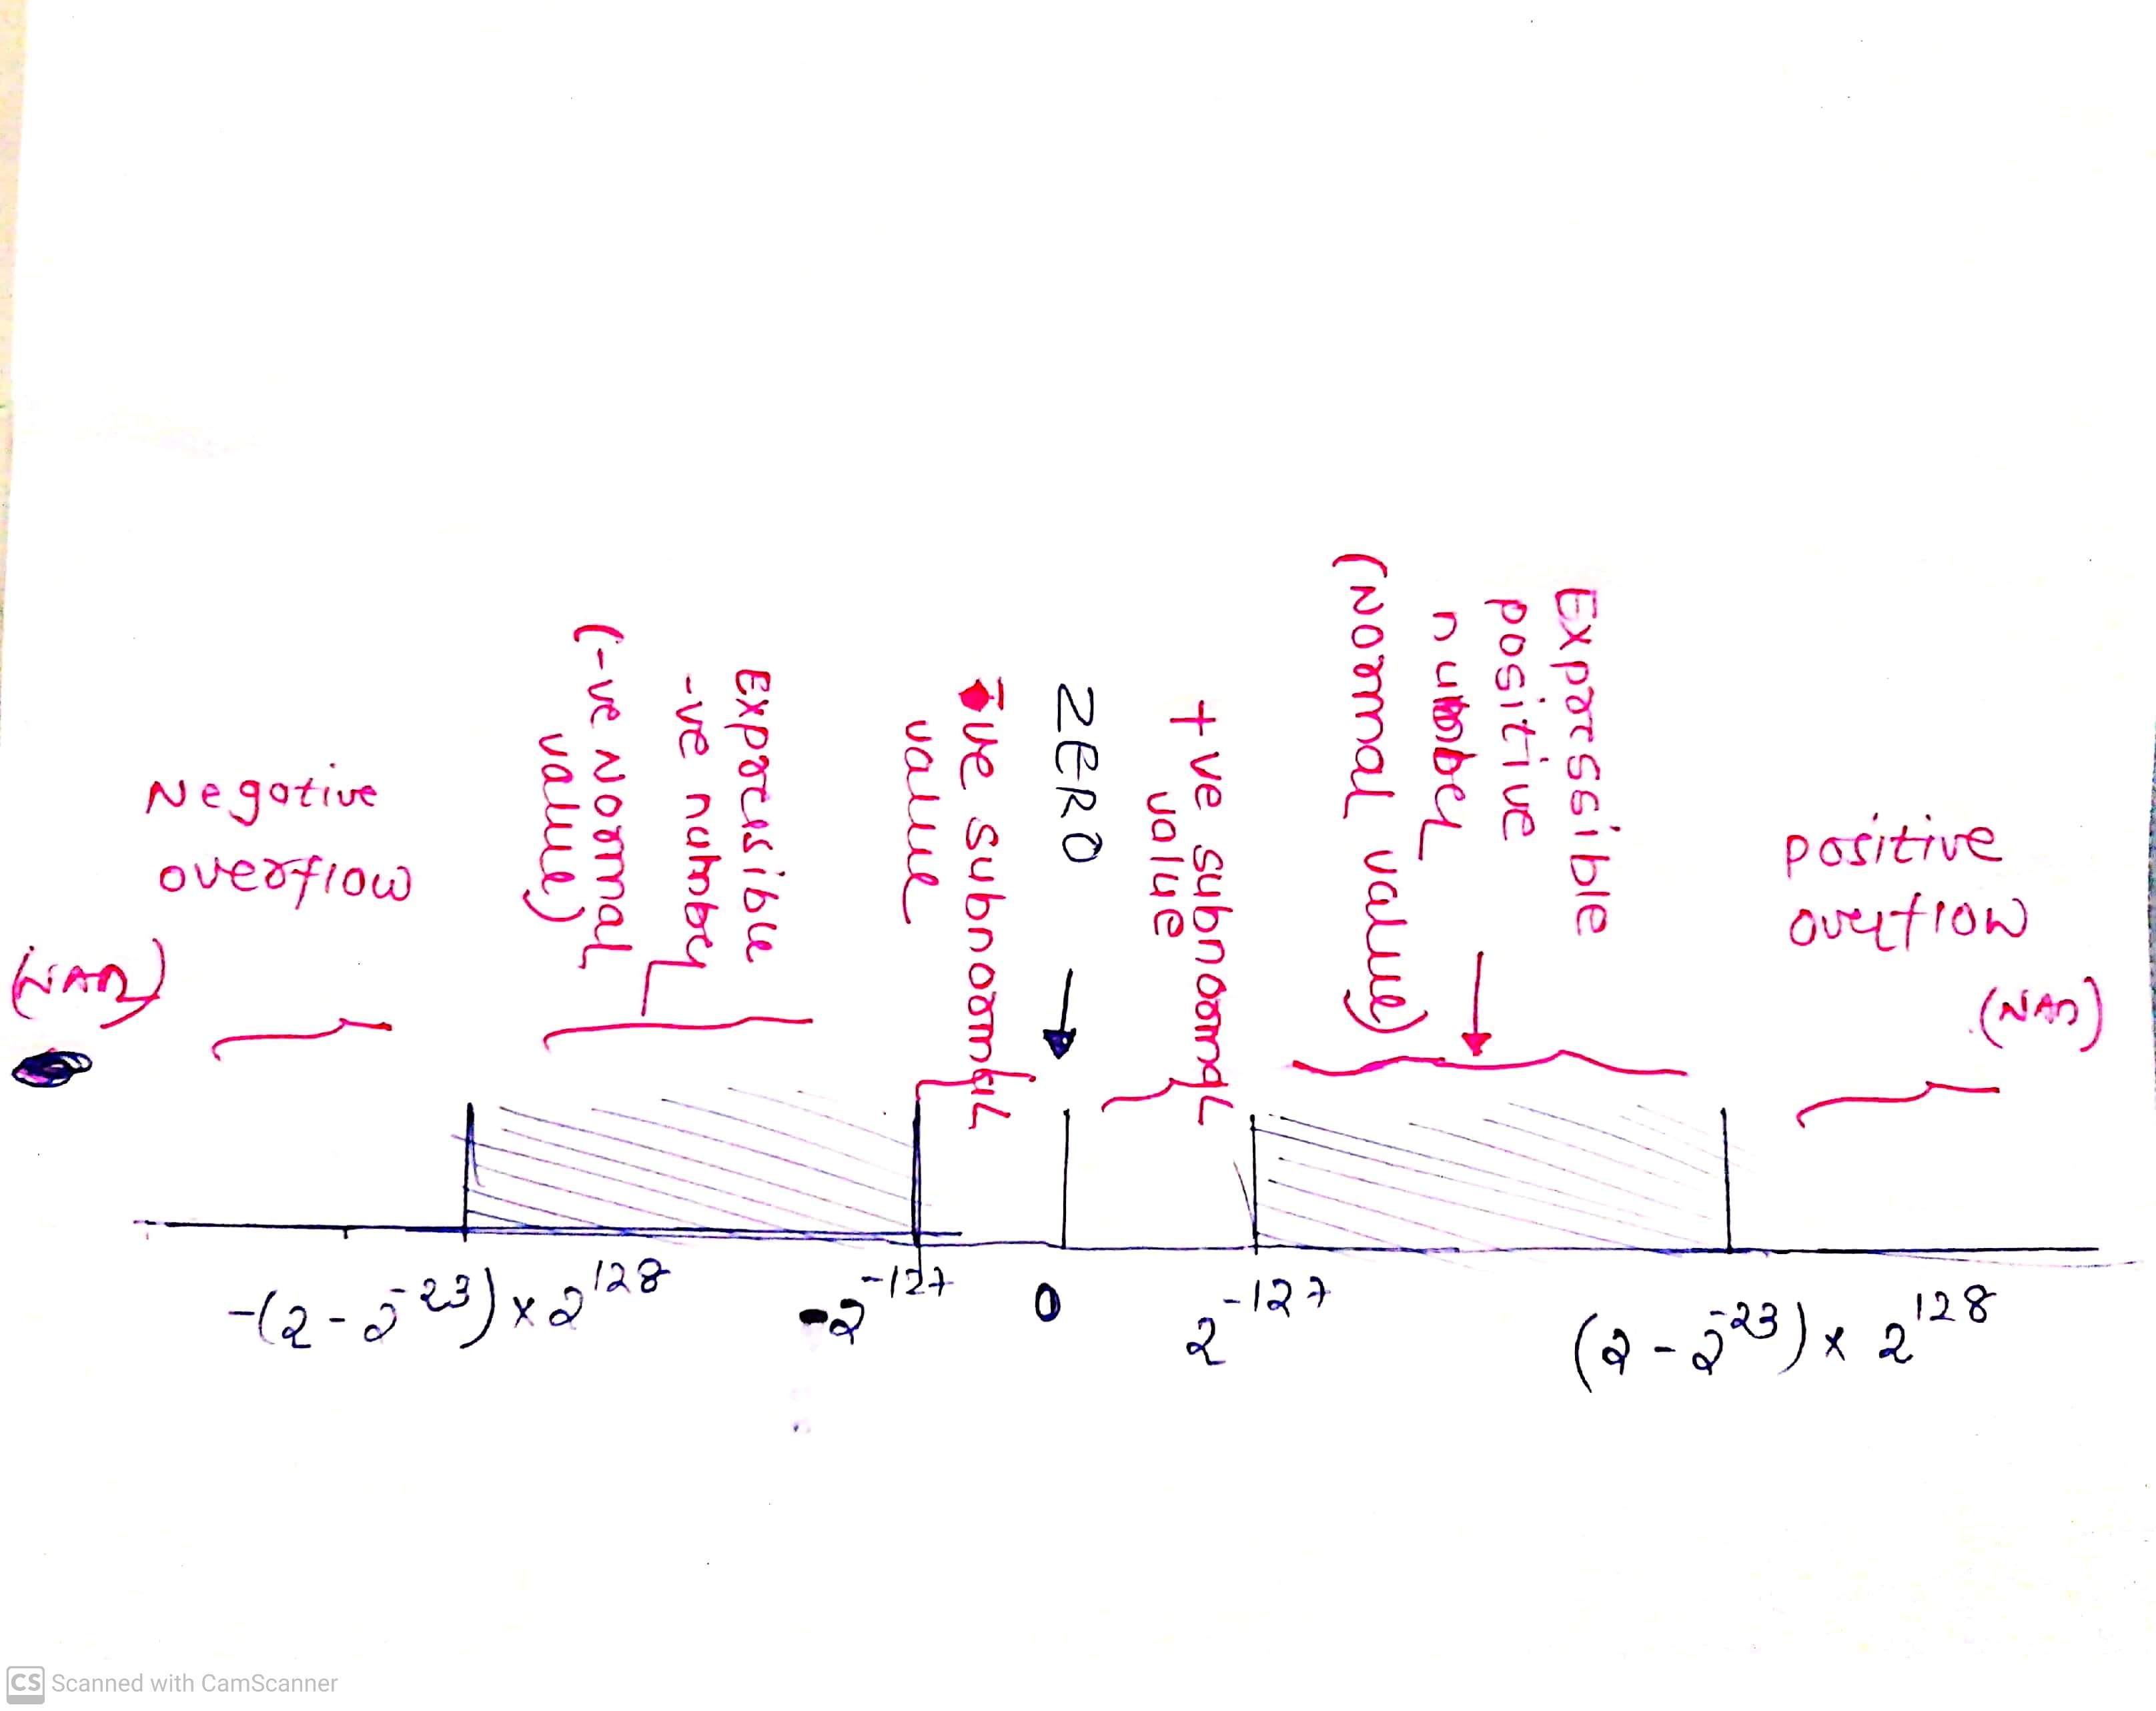 Negative
overflow
(NAN)
Expressible
-ve number
(-ve Normal
value)
-ve subnormal
value
ZERO
+ve subnormal
value
Expressible
positive
number
(Normal value)
positive
overflow
(NAN)
-(2-2⁻²³)×2¹²⁸
-2⁻¹²⁷
0
2⁻¹²⁷
(2-2⁻²³)×2¹²⁸
CS Scanned with CamScanner